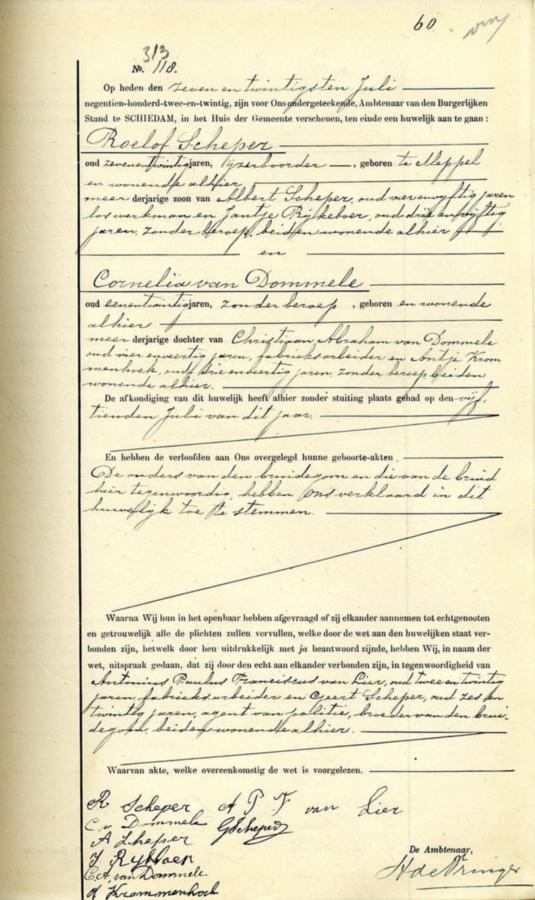 60
313
No. 118.
Op heden den zeven en twintigsten Juli
negentien-honderd-twee-en-twintig, zijn voor Ons ondergeteekende, Ambtenaar van den Burgerlijken
Stand te SCHIEDAM, in het Huis der Gemeente verschenen, ten einde een huwelijk aan te gaan:
Roelof Scheper
oud zevenentwintig jaren, ijzerboorder, geboren te Meppel
en wonende alhier
meerderjarige zoon van Albert Scheper, oud vierenvyftig jaren
loswerkman en Jantje Rijkeboer, oud drie en vyftig
jaren, zonder beroep, beiden wonende alhier
en
Cornelia van Dommele
oud eenentwintig jaren, zonder beroep, geboren en wonende
alhier
meerderjarige dochter van Christiaan Abraham van Dommele
oud vier en veertig jaren, fabrieksarbeider en Antje Krom
menhoek, oud drie en veertig jaren, zonder beroep beiden
wonende alhier.
De afkondiging van dit huwelijk heeft alhier zonder stuiting plaats gehad op den vijf
tienden Juli van dit jaar.
En hebben de verloofden aan Ons overgelegd hunne geboorte-akten
De ouders van den bruidegom en die van de bruid
hier tegenwoordig, hebben Ons verklaard in dit
huwelijk toe te stemmen.
Waarna Wij hun in het openbaar hebben afgevraagd of zij elkander aannemen tot echtgenooten
en getrouwelijk alle de plichten zullen vervullen, welke door de wet aan den huwelijken staat ver-
bonden zijn, hetwelk door hen uitdrukkelijk met ja beantwoord zijnde, hebben Wij, in naam der
wet, uitspraak gedaan, dat zij door den echt aan elkander verbonden zijn, in tegenwoordigheid van
Antonius Paulus Franciscus van Lier, oud twee en twintig
jaren, fabrieksarbeider en Geert Scheper, oud zes en
twintig jaren, agent van politie, broeder van den brui-
degom, beiden wonende alhier.
Waarvan akte, welke overeenkomstig de wet is voorgelezen.
R Scheper A P F van Lier
C. v Dommele G Scheper
A Scheper
J Rykboer
C.A. van Dommele
A Krommenhoek
De Ambtenaar,